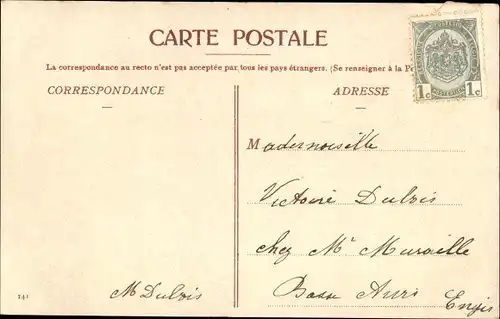 CARTE POSTALE
La correspondance au recto n'est pas acceptée par tous les pays étrangers. (Se renseigner à la
CORRESPONDANCE
ADRESSE
1c 1c
Mademoiselle
Victoire Dubois
chez Mr Muraille
Basse Awirs
Engis
M Dubois
141